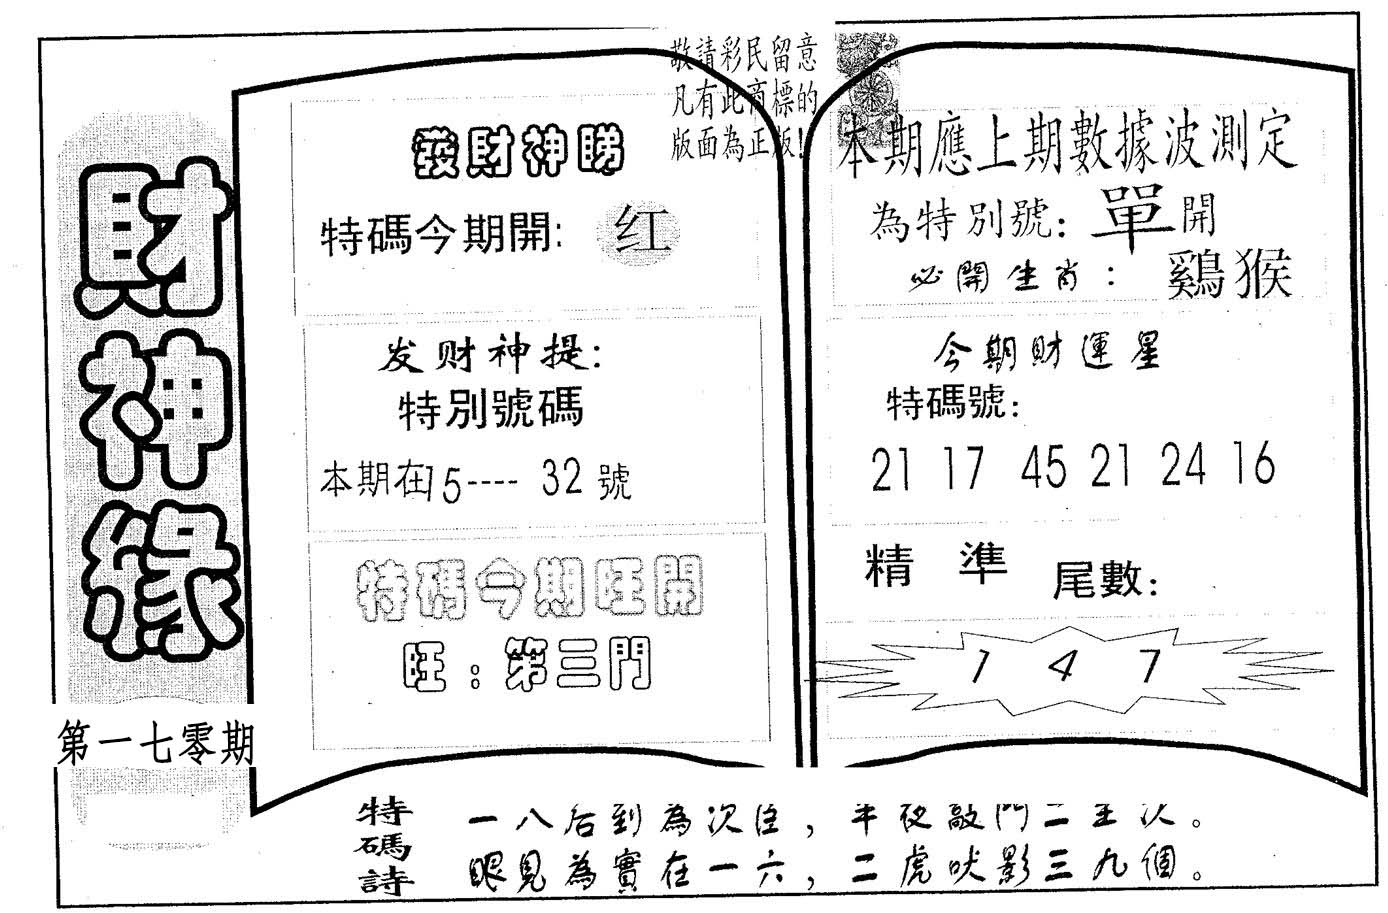 敬請彩民留意
凡有此商標的
版面為正版!
財神緣
第一七零期
發財神睇
特碼今期開: 红
发财神提:
特別號碼
本期在15---- 32號
特碼今期旺開
旺:第三門
本期應上期數據波測定
為特別號: 單開
必開生肖: 鷄猴
今期財運星
特碼號:
21 17 45 21 24 16
精 準 尾數:
1 4 7
特碼詩
一八后到為次 , 半夜敲門二 次。
眼見為實在一六, 二虎吠影三九個。